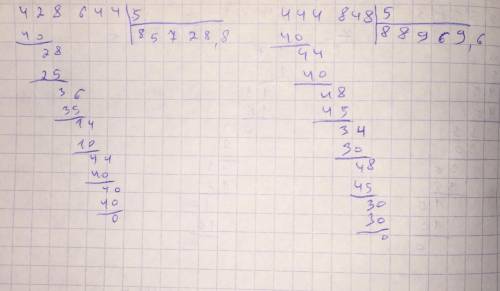 428 644 5
40 85728,8
28
25
36
35
14
10
44
40
40
40
0
444 848 5
40 88969,6
44
40
48
45
34
30
48
45
30
30
0